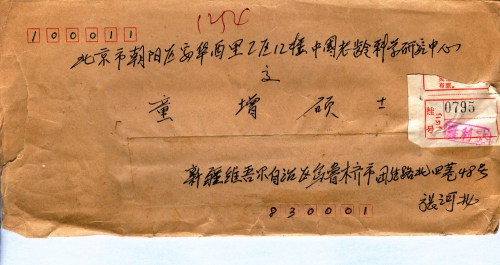 1254
100011
北京市朝阳区安华西里2区12楼中国老龄科学研究中心
童 增 硕 士
挂号
0795
新疆维吾尔自治区乌鲁木齐市团结路北四巷48号
张河北
830001